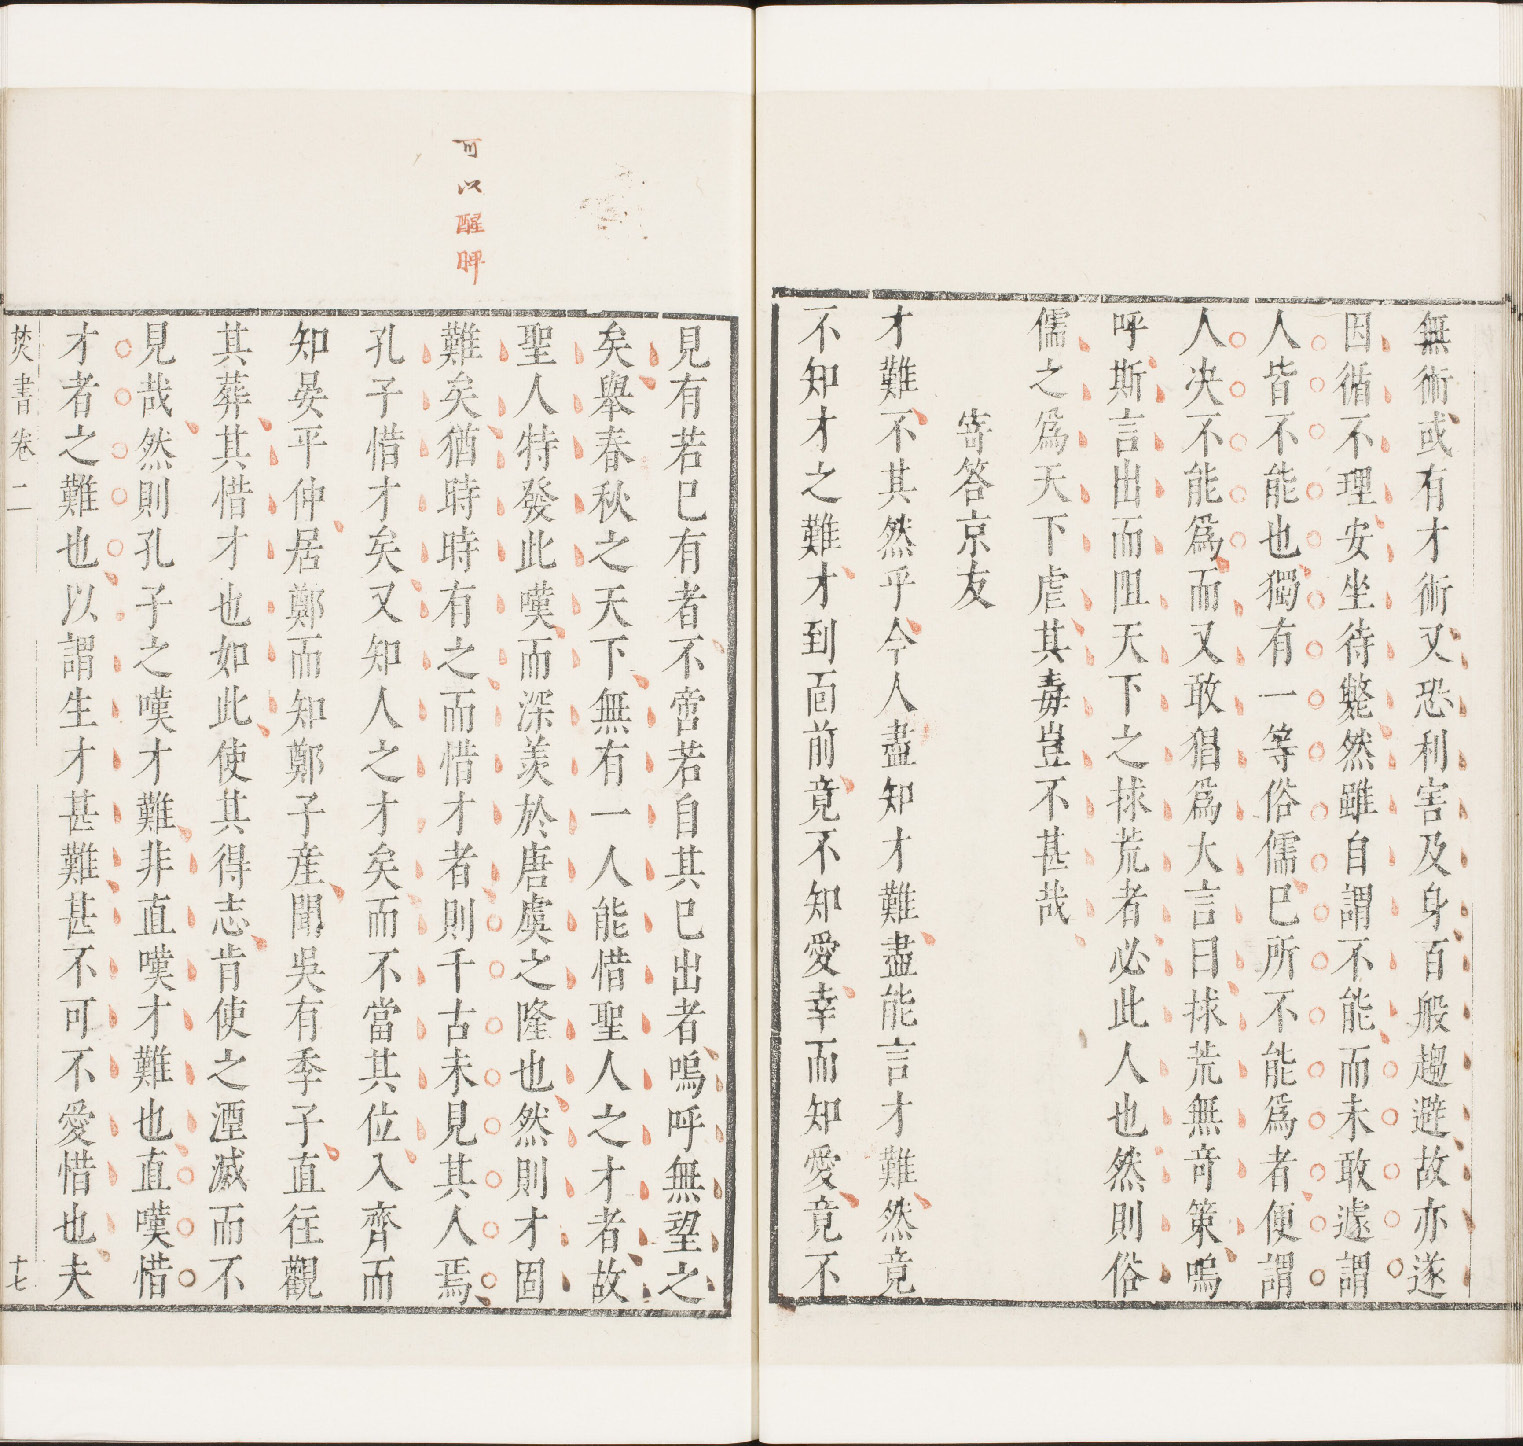 無術或有才術又恐利害及身百般趨避故亦遂
因循不理安坐待斃然雖自謂不能而未敢遽謂
人皆不能也獨有一等俗儒已所不能爲者便謂
人决不能爲而又敢猖爲大言曰捄荒無奇策嗚
呼斯言出而阻天下之捄荒者必此人也然則俗
儒之爲天下虐其毒豈不甚哉
寄答京友
才難不其然乎今人盡知才難盡能言才難然竟
不知才之難才到面前竟不知愛幸而知愛竟不
可以醒脾
見有若已有者不啻若自其已出者嗚呼無望之
矣舉春秋之天下無有一人能惜聖人之才者故
聖人特發此嘆而深羡於唐虞之隆也然則才固
難矣猶時時有之而惜才者則千古未見其人焉
孔子惜才矣又知人之才矣而不當其位入齊而
知晏平仲居鄭而知鄭子產聞吳有季子直徃觀
其葬其惜才也如此使其得志肯使之湮滅而不
見哉然則孔子之嘆才難非直嘆才難也直嘆惜
才者之難也以謂生才甚難甚不可不愛惜也夫
焚書卷二
十七